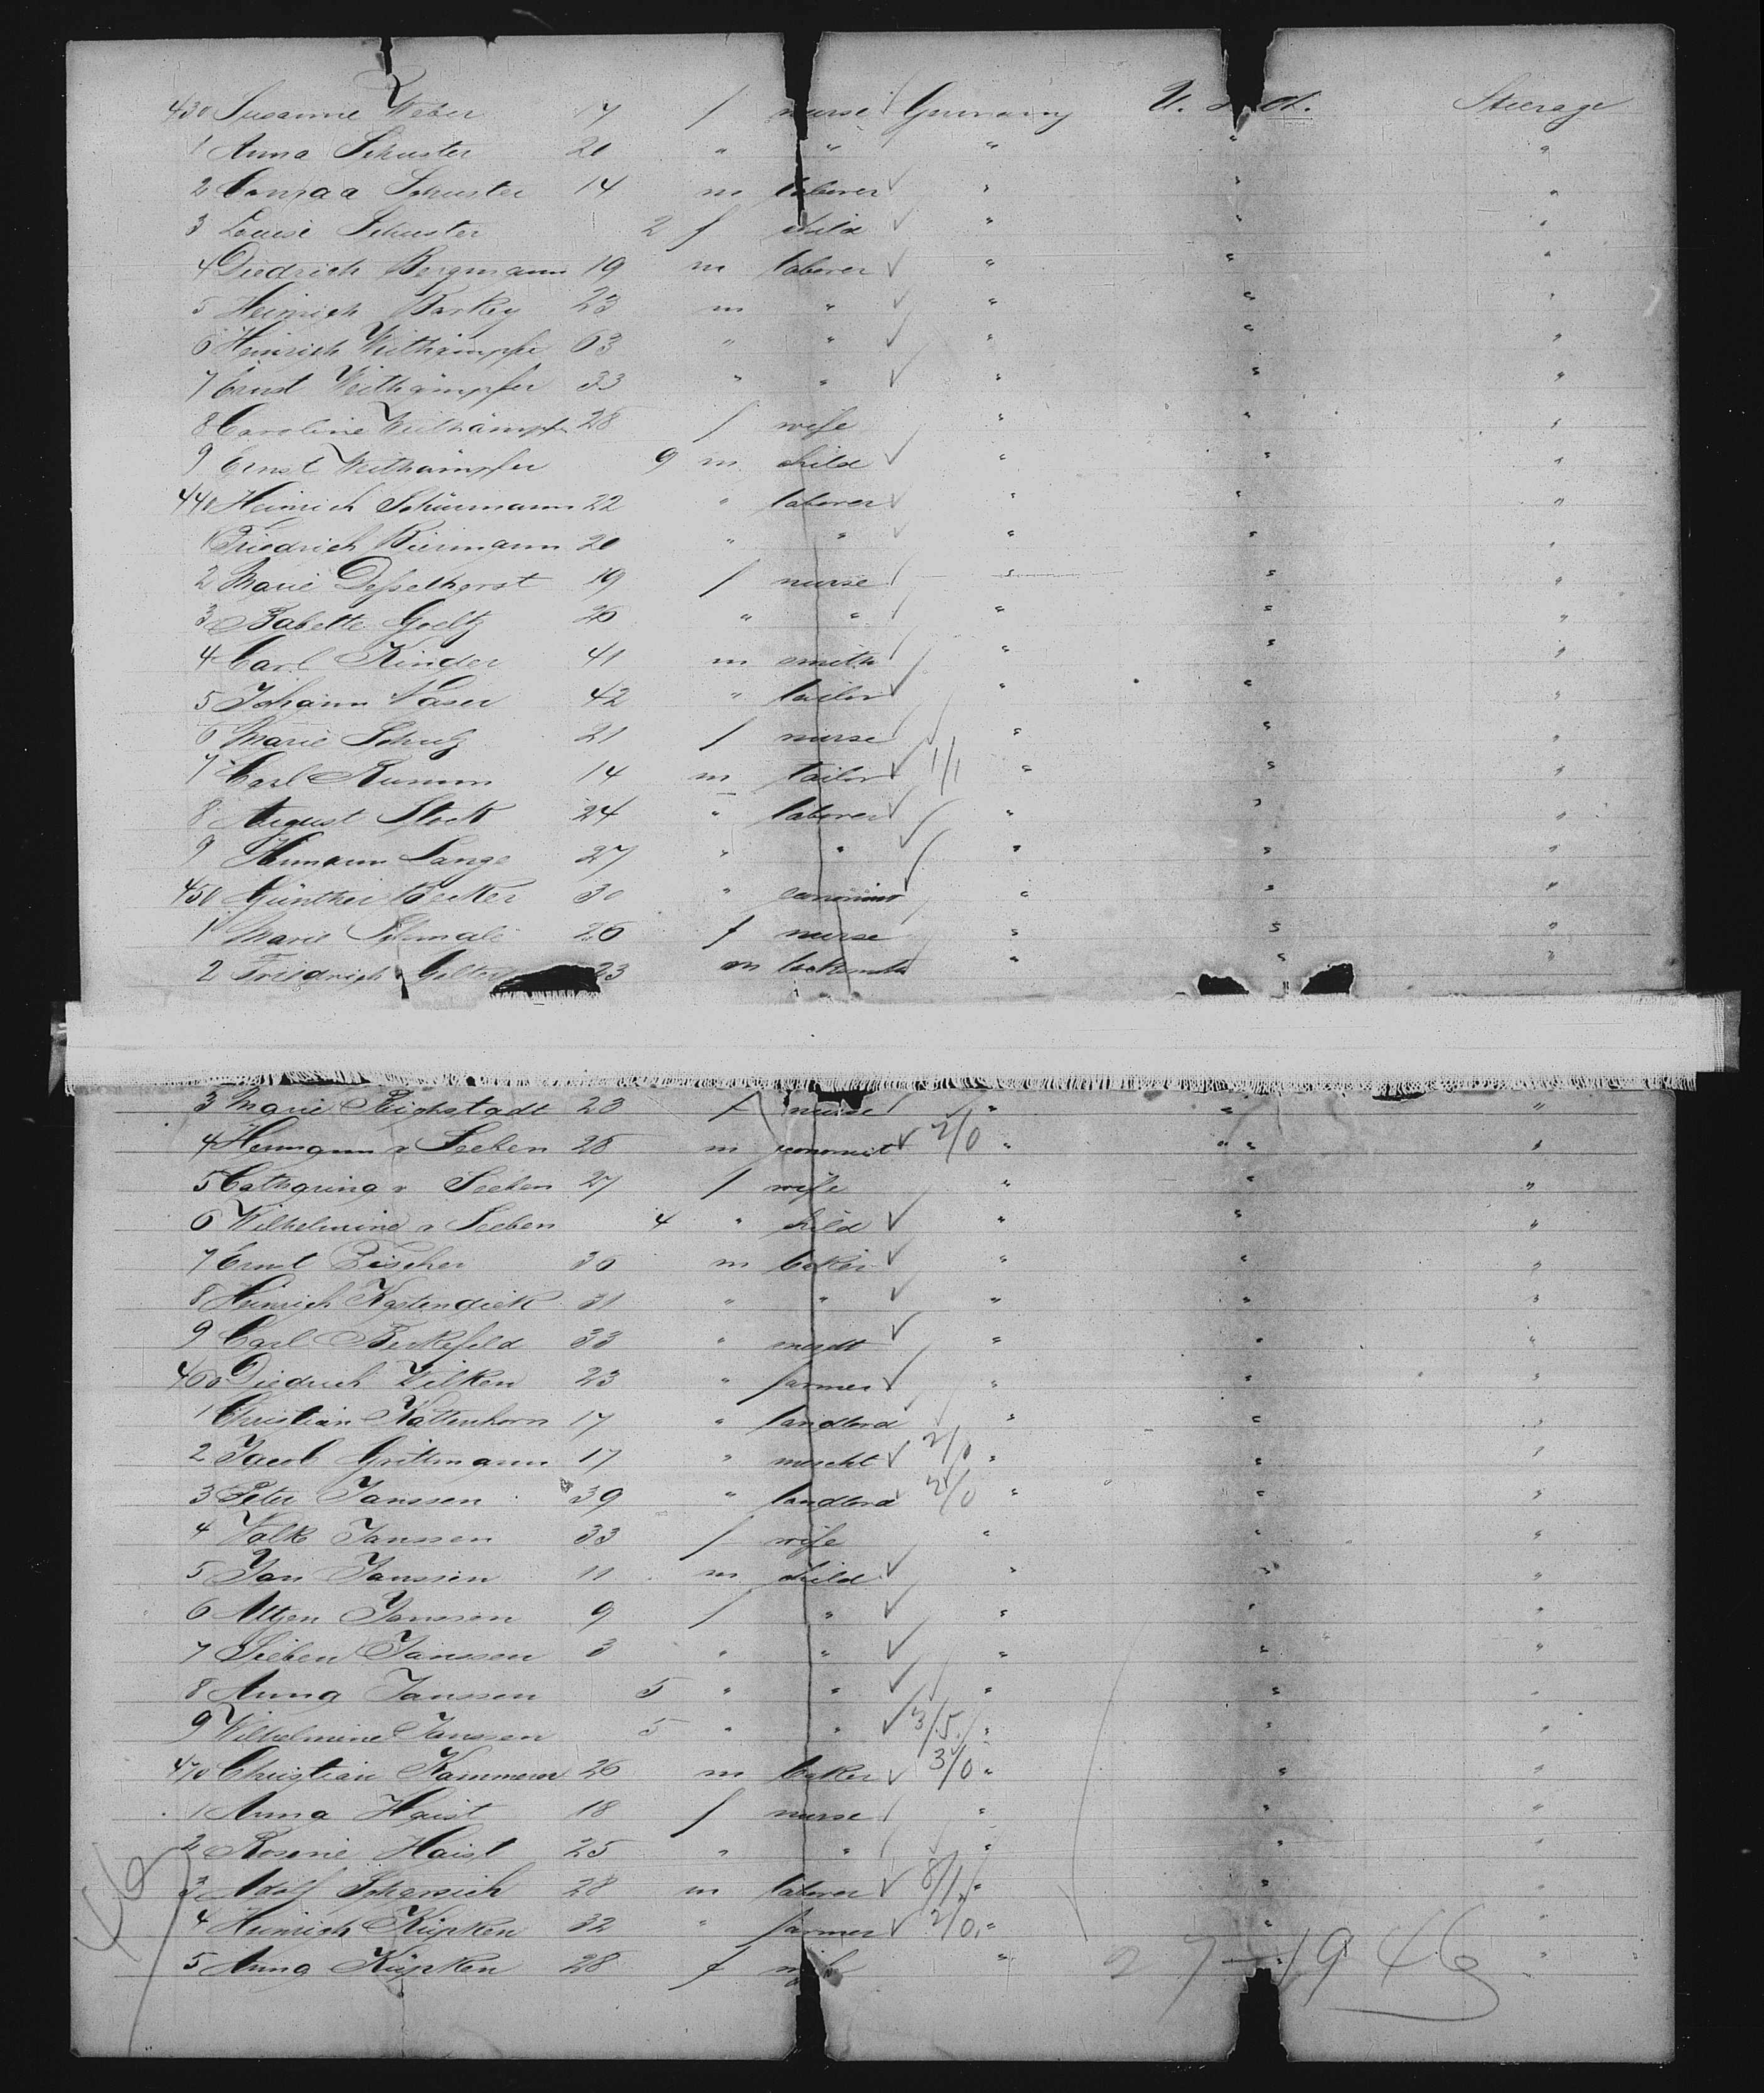 430 Susanne Weber 17 f nurse Germany U. S. of A. Steerage
1 Anna Schuster 20 " " " " "
2 Conrad Schuster 14 m laborer " " "
3 Louise Schuster 2 f child " " "
4 Diedrich Bergmann 19 m laborer " " "
5 Heinrich Barkey 23 m " " " "
6 Heinrich Weithämpfer 63 " " " " "
7 Ernst Weithämpfer 33 " " " " "
8 Caroline Weithämpfer 28 f wife " " "
9 Ernst Weithämpfer 9 m child " " "
440 Heinrich Schürmann 22 " laborer " " "
1 Friedrich Biermann 20 " " " " "
2 Marie Desselhorst 19 f nurse " " "
3 Babette Goeltz 26 " " " " "
4 Carl Kinder 41 m smith " " "
5 Johann Vaser 42 " tailor " " "
6 Marie Schulz 21 f nurse " " "
7 Carl Rumm 14 m tailor 1/1 " " "
8 August Stock 24 " laborer " " "
9 Hermann Lange 27 " " " " "
450 Günther Becker 30 " " " "
1 Marie Schmale 26 f nurse " " "
2 Friedrich 23 m locksmith " " "
3 Marie Reichstadt 23 f nurse " " "
4 Hermann v Seeben 28 m economist 2/0 " " "
5 Catharina v Seeben 27 f wife " " "
6 Wilhelmine v Seeben 4 " child " " "
7 Ernst Fischer 36 m baker " " "
8 Heinrich Kastendiek 31 " " " " "
9 Carl Berkefeld 33 " mercht " " "
460 Diedrich Wilken 23 " farmer " " "
1 Christian Kattenhorn 17 " landlord " " "
2 Jacob Grittmann 17 " mercht 2/0 " " "
3 Peter Janssen 39 " landlord 2/0 " " "
4 Valk Janssen 33 f wife " " "
5 Jan Janssen 11 m child " " "
6 Altjen Janssen 9 f " " " "
7 Sieben Janssen 3 " " " " "
8 Anna Janssen 5 " " " " "
9 Wilhelmine Janssen 5 " " 3/5 " " "
470 Christian Kammerer 26 m baker 3/0 " " "
1 Anna Haist 18 f nurse " " "
2 Rosine Haist 25 " " " " "
3 Adolf 28 m laborer 8/1 " " "
4 Heinrich Küpken 32 " farmer 2/0 " " "
5 Anna Küpken 28 f wife " " "
46
27-19 46